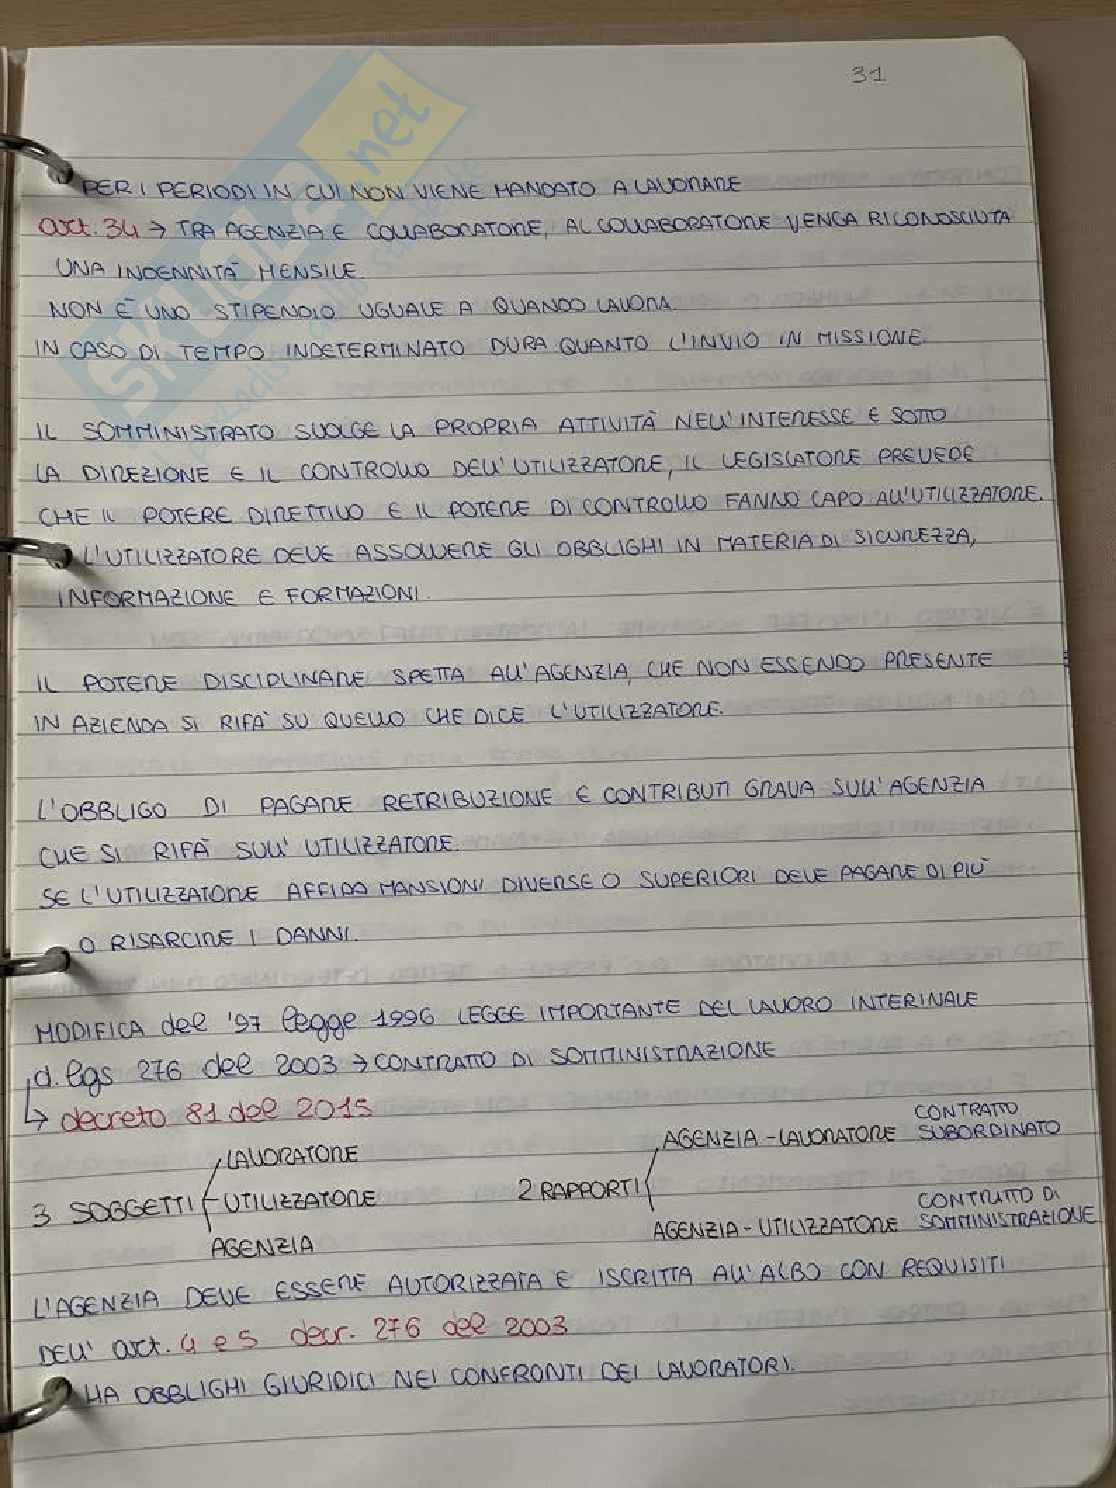 31
PER I PERIODI IN CUI NON VIENE MANDATO A LAVORARE
art. 34 → TRA AGENZIA E COLLABORATORE, AL COLLABORATORE VENGA RICONOSCIUTA
UNA INDENNITÀ MENSILE.
NON È UNO STIPENDIO UGUALE A QUANDO LAVORA.
IN CASO DI TEMPO INDETERMINATO DURA QUANTO L'INVIO IN MISSIONE.
IL SOMMINISTRATO SVOLGE LA PROPRIA ATTIVITÀ NELL'INTERESSE E SOTTO
LA DIREZIONE E IL CONTROLLO DELL'UTILIZZATORE, IL LEGISLATORE PREVEDE
CHE IL POTERE DIRETTIVO E IL POTERE DI CONTROLLO FANNO CAPO ALL'UTILIZZATORE.
L'UTILIZZATORE DEVE ASSOLVERE GLI OBBLIGHI IN MATERIA DI SICUREZZA,
INFORMAZIONE E FORMAZIONI.
IL POTERE DISCIPLINARE SPETTA ALL'AGENZIA, CHE NON ESSENDO PRESENTE
IN AZIENDA SI RIFÀ SU QUELLO CHE DICE L'UTILIZZATORE.
L'OBBLIGO DI PAGARE RETRIBUZIONE E CONTRIBUTI GRAVA SULL'AGENZIA
CHE SI RIFÀ SULL'UTILIZZATORE.
SE L'UTILIZZATORE AFFIDA MANSIONI DIVERSE O SUPERIORI DEVE PAGARE DI PIÙ
O RISARCIRE I DANNI.
MODIFICA del '97 legge 1996 LEGGE IMPORTANTE DEL LAVORO INTERINALE
d. lgs 276 del 2003 → CONTRATTO DI SOMMINISTRAZIONE
↳ decreto 81 del 2015
3 SOGGETTI
LAVORATORE
UTILIZZATORE
AGENZIA
2 RAPPORTI
AGENZIA - LAVORATORE CONTRATTO SUBORDINATO
AGENZIA - UTILIZZATORE CONTRATTO DI SOMMINISTRAZIONE
L'AGENZIA DEVE ESSERE AUTORIZZATA E ISCRITTA ALL'ALBO CON REQUISITI
DELL' art. 4 e 5 decr. 276 del 2003
HA OBBLIGHI GIURIDICI NEI CONFRONTI DEI LAVORATORI.
SKUOLA.net